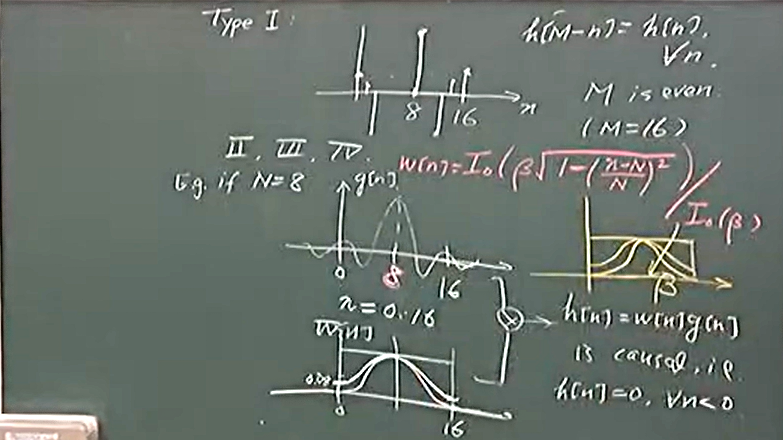 Type I:
h[M-n]=h[n],
∀n.
8 16 n
M is even.
(M=16)
II, III, IV.
E.g. if N=8
w[n]=I₀(β√1-((n-N)/N)²)/I₀(β)
g[n]
0 8 16
β
n=0:16
W[n]
0.08
0 16
h[n]=w[n]g[n]
is causal, i.e.
h[n]=0, ∀n<0